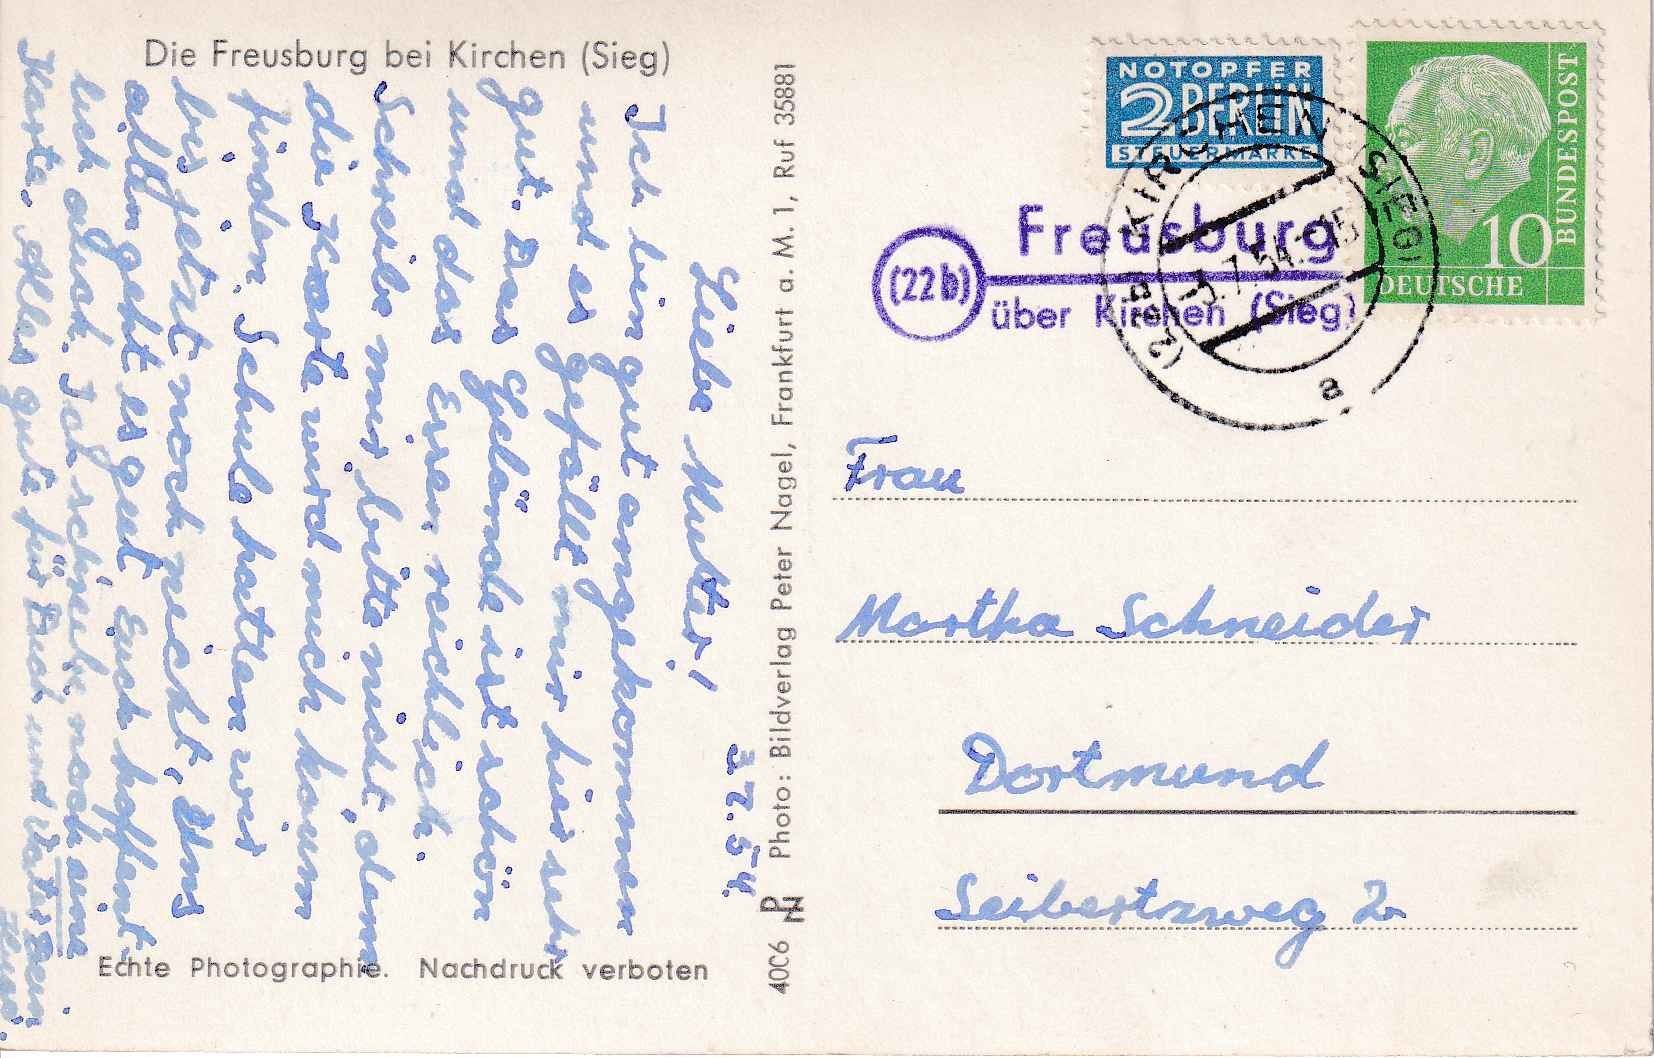 Die Freusburg bei Kirchen (Sieg)
3.7.54.
Liebe Mutter!
Ich bin gut angekommen
und es gefällt mir hier sehr
gut. Das Gelände ist schön
und das Essen reichlich.
Schreibe mir bitte nicht, denn
die Karte wird mich kaum
finden. Schule hatten wir
bis jetzt noch nicht, Uns
allen geht es gut Euch hoffent-
lich auch. Ich schreibe noch eine
Karte. Alles gute für Dich und Vater Dein
Echte Photographie. Nachdruck verboten
40C6 PN Photo: Bildverlag Peter Nagel, Frankfurt a. M. 1, Ruf 35881
NOTOPFER
2 BERLIN
STEUERMARKE
10
DEUTSCHE
BUNDESPOST
KIRCHEN (SIEG)
(22b)
3.7.54.
a
(22b)
Freusburg
über Kirchen (Sieg)
Frau
Martha Schneider
Dortmund
Seibertzweg 2